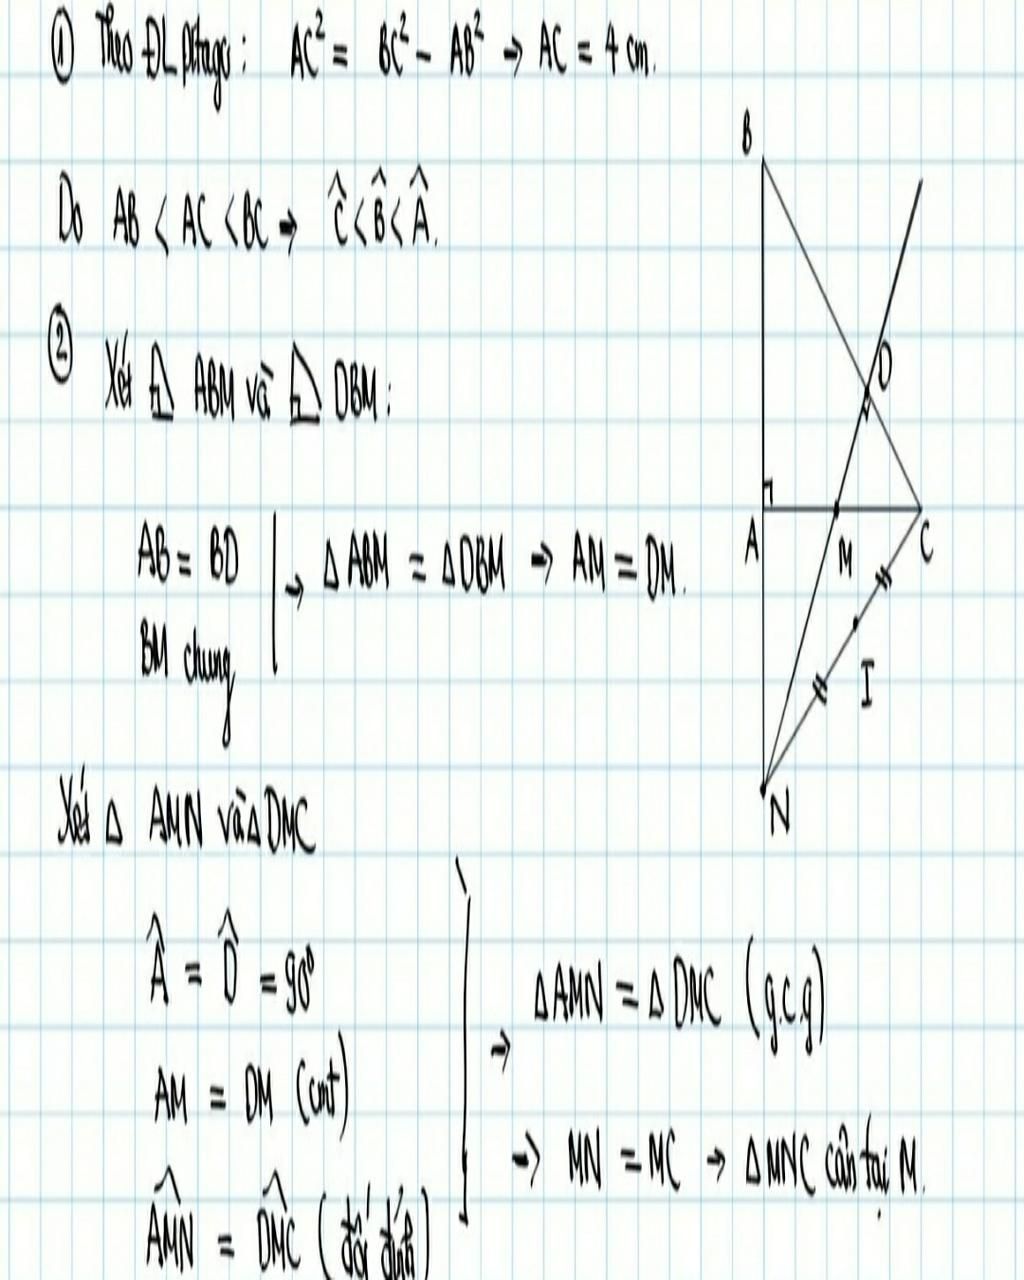 ① Theo ĐL pitago: AC² = BC² - AB² → AC = 4 cm.
Do AB < AC < BC → Ĉ < B̂ < Â.
② Xét ⊿ ABM và ⊿ DBM:
AB = BD
BM chung
→ ΔABM = ΔDBM → AM = DM.
Xét Δ AMN và Δ DMC
Â = D̂ = 90⁰
AM = DM (cmt)
AMN̂ = DMĈ (đối đỉnh)
→ ΔAMN = Δ DMC (g.c.g)
→ MN = MC → ΔMNC cân tại M.
B
D
A
M
C
I
N